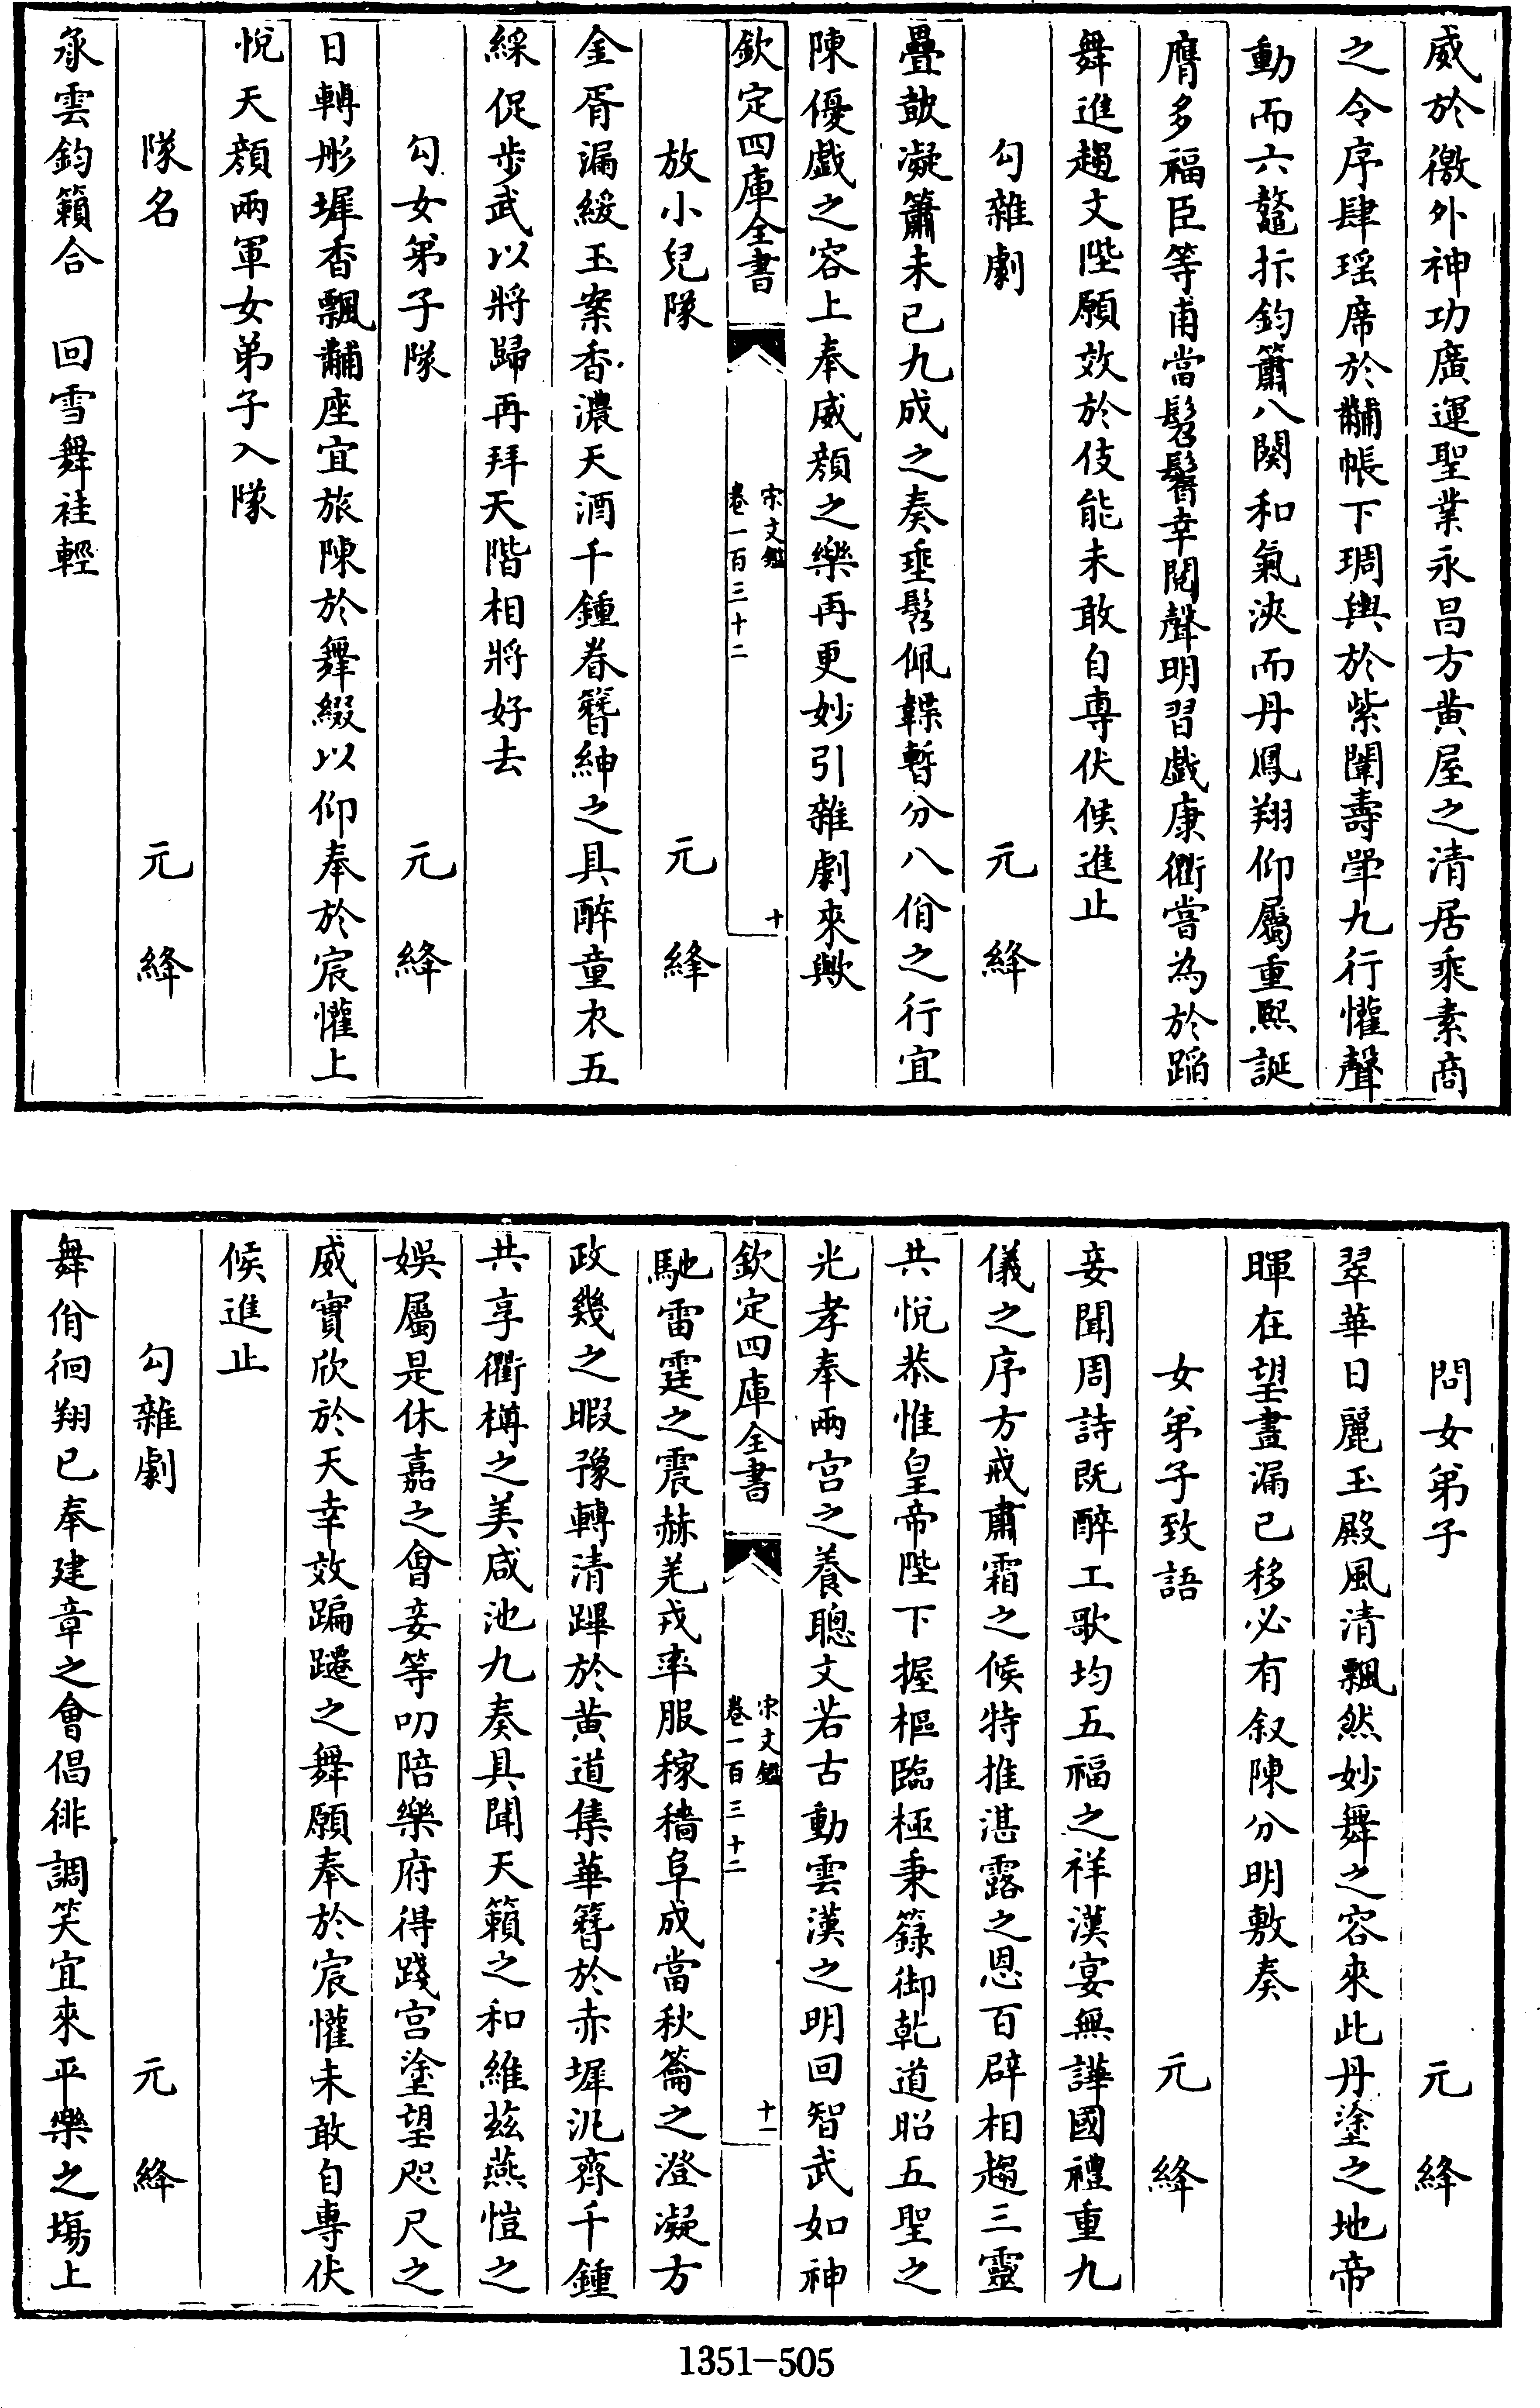 威於徼外神功廣運聖業永昌方黄屋之清居乘素商
之令序肆瑶席於黼帳下琱輿於紫闈壽斝九行懽聲
動而六鼇抃鈞簫八闋和氣浹而丹鳳翔仰屬重熙誕
膺多福臣等甫當髫鬌幸閲聲明習戲康衢嘗為於蹈
舞進趨文陛願效於伎能未敢自専伏候進止
勾雜劇 元絳
疊鼓凝簫未已九成之奏垂髫佩韘暫分八佾之行宜
陳優戲之容上奉威顔之樂再更妙引雜劇來歟
欽定四庫全書
宋文鑑
卷一百三十二
十
放小兒隊 元絳
金胥漏緩玉案香濃天酒千鍾眷簪紳之具醉童衣五
綵促歩武以將歸再拜天階相將好去
勾女弟子隊 元絳
日轉彤墀香飄黼座宜旅陳於舞綴以仰奉於宸懽上
悦天顔兩軍女弟子入隊
隊名 元絳
彔雲鈞籟合 回雪舞袿輕
問女弟子 元絳
翠華日麗玉殿風清飄然妙舞之容來此丹塗之地帝
暉在望晝漏已移必有叙陳分明敷奏
女弟子致語 元絳
妾聞周詩既醉工歌均五福之祥漢宴無譁國禮重九
儀之序方戒肅霜之候特推湛露之恩百辟相趨三靈
共悦恭惟皇帝陛下握樞臨極秉籙御乾道昭五聖之
光孝奉兩宫之養聰文若古動雲漢之明回智武如神
欽定四庫全書
宋文鑑
卷一百三十二
十一
馳雷霆之震赫羌戎率服稼穡阜成當秋籥之澄凝方
政幾之暇豫轉清蹕於黄道集華簪於赤墀汎齊千鍾
共享衢樽之美咸池九奏具聞天籟之和維兹燕愷之
娱屬是休嘉之㑹妾等叨陪樂府得踐宫塗望咫尺之
威實欣於天幸效蹁躚之舞願奉於宸懽未敢自専伏
候進止
勾雜劇 元絳
舞佾徊翔已奉建章之會倡徘調笑宜來平樂之塲上
1351-505